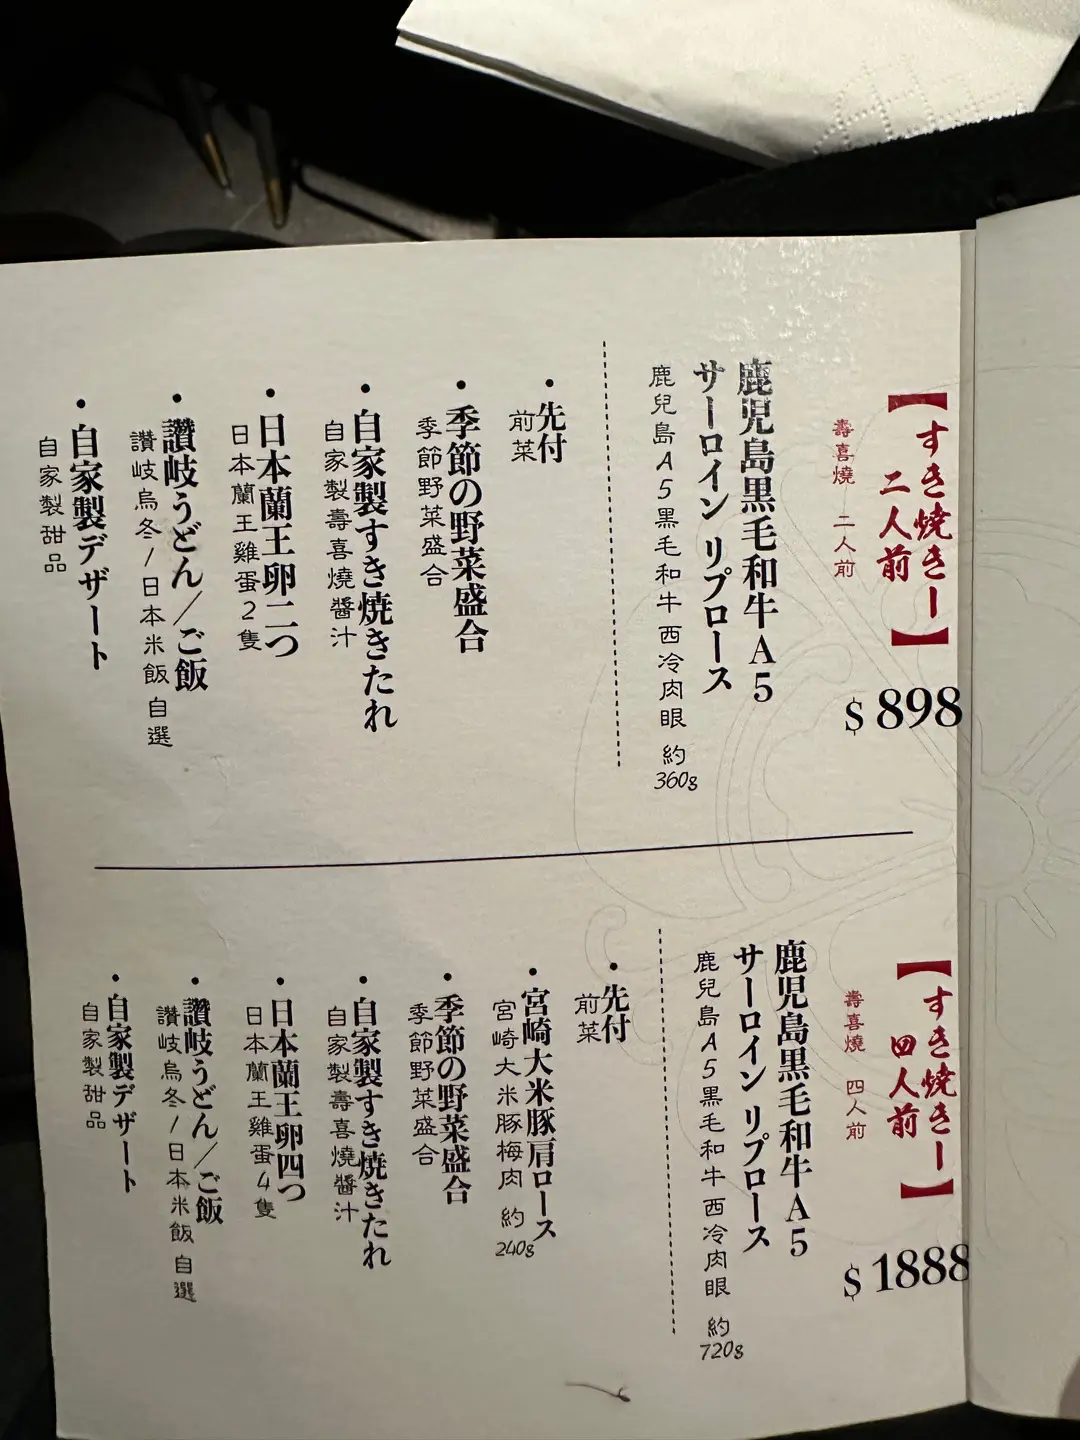 【すき焼きー】
二人前
壽喜燒 二人前
$898
鹿児島黒毛和牛A5
サーロイン リブロース
鹿兒島A5黑毛和牛西冷肉眼 約360g
・先付
前菜
・季節の野菜盛合
季節野菜盛合
・自家製すき焼きたれ
自家製壽喜燒醬汁
・日本蘭王卵二つ
日本蘭王雞蛋2隻
・讃岐うどん/ご飯
讚岐烏冬/日本米飯 自選
・自家製デザート
自家製甜品
【すき焼きー】
四人前
壽喜燒 四人前
$1888
鹿児島黒毛和牛A5
サーロイン リブロース
鹿兒島A5黑毛和牛西冷肉眼 約720g
・先付
前菜
・宮崎大米豚肩ロース
宮崎大米豚梅肉 約240g
・季節の野菜盛合
季節野菜盛合
・自家製すき焼きたれ
自家製壽喜燒醬汁
・日本蘭王卵四つ
日本蘭王雞蛋4隻
・讃岐うどん/ご飯
讚岐烏冬/日本米飯 自選
・自家製デザート
自家製甜品